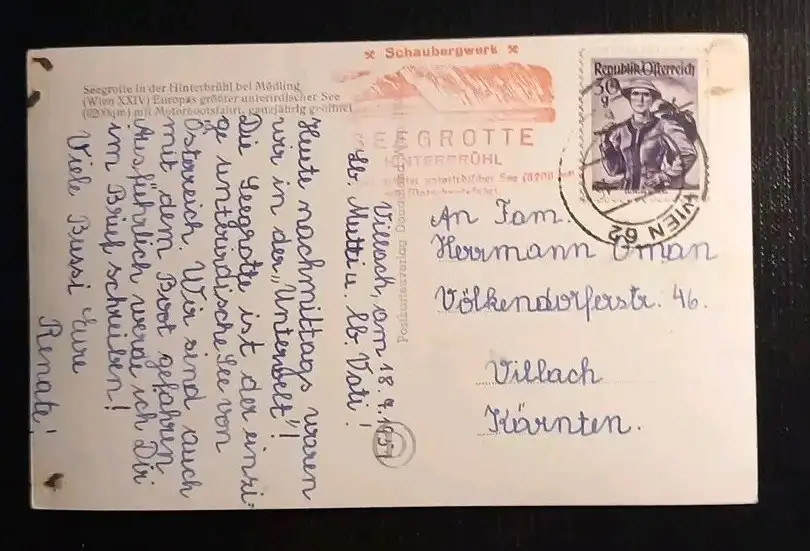 Seegrotte in der Hinterbrühl bei Mödling
(Wien XXIV) Europas größter unterirdischer See
(6200qm) mit Motorbootsfahrt, ganzjährig geöffnet
Schaubergwerk
SEEGROTTE
HINTERBRÜHL
größter unterirdischer See (6200 qm)
Republik Österreich
30 g
WIEN 62
Villach, am 18.9.1951
Lb. Mutti u. lb. Vati!
Heute nachmittags waren
wir in der „Unterwelt"!
Die Seegrotte ist der einzi-
ge unterirdische See von
Österreich. Wir sind auch
mit "dem Boot gefahren.
Ausführlich werde ich Dir
im Brief schreiben!
Viele Bussi Eure
Renate!
An Fam.
Herrmann Oman
Völkendorferstr. 46.
Villach
Kärnten.